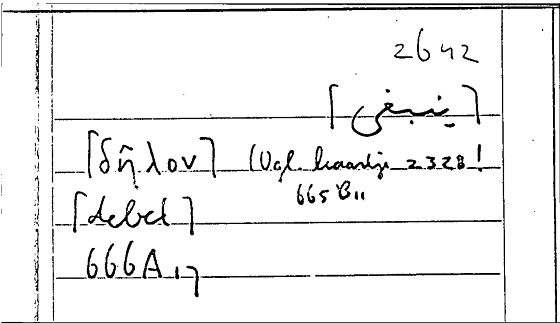 2642
[ينبغى]
[δῆλον] (Vgl. kaartje 2328!
665B11
[debet]
666A17